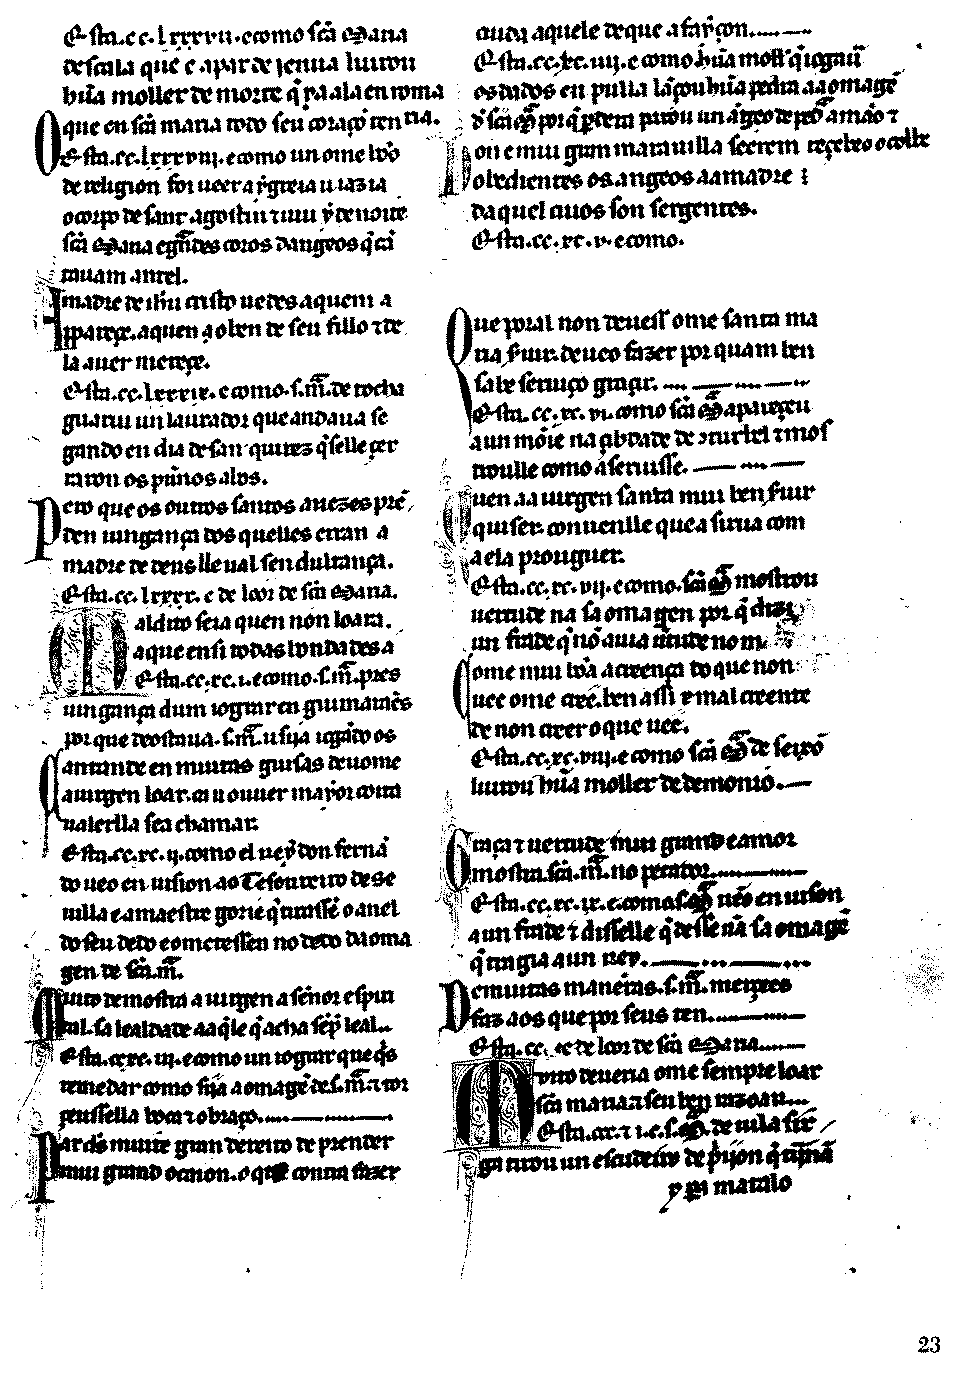 Esta .cc.lxxxvii. e como scã Maria
de scala que e a par de jenua liurou
hũa moller de morte q̃ ya ala en roma
Que en scã maria todo seu coraçõ ten
Esta .cc.lxxxviij. e como un ome bõo
de religion foi ueer a ygreia u iazia
o corpo de sant agostin τ uiu y de noite
scã Maria e grãdes coros dangeos q̃ cã
tauam antel.
A madre de ihũ cristo uedes a quem a
pareçe. a quen o ben de seu fillo τ de
la auer mereçe.
Esta .cc.lxxxix. e como .s.M. de tocha
guariu un laurador que andaua se
gando en dia de san quirez q̃ selle çer
raron os pũnos ambos.
Pero que os outros santos auezes prẽ
den uingança dos quelles erran a
madre de deus lle ual sen dultança.
Esta .cc.lxxxx. e de loor de scã Maria.
Maldito seia quen non loara.
a que en si todas bondades a
Esta .cc.xc.i. e como .s.M. pres
uingança dum iograr
por que deostaua .s.M.
Cantando e en muitas guisas deu ome
a uirgen loar. ca u ouuer mayor coita
ualerlla sea chamar.
Esta .cc.xc.ij. como el rey don fernã
do ueo en uision ao Tesoureiro de se
uilla e a maestre gorie q̃ tirassẽ o anel
do seu dedo e o metessen no dedo da oma
gen de scã .M.
Muito demostra a uirgen a sẽnor espiri
tal. sa lealdade a aq̃le q̃ acha sẽp̃ leal..
Esta .cc.xc.iij. e como un iograr que q̃s
remedar como sija a omagẽ de .s.M. τ tor
çeusse lla boca τ o braço.....
Par deus muit e gran dereito de prender
mui grand ocaion. o que contra fazer
cuda aquele de que a fayçon.....
Esta .cc.xc.iiij. e como hũa moll' q̃ iogaũ
os dados en pulla lãçou hũa pedra aa omagẽ
Non e mui gram marauilla seerem
obedientes os angeos aa madre
daquel cuios son sergentes.
Esta .cc.xc.v. e como.
Que por al non deuess' ome santa ma
ria seruir. deuco fazer por quam ben
sabe seruiço graçir.
Esta .cc.xc.vi. como scã M apareçeu
a un mõie na çibdade de conturbel τ mos
troulle como a seruisse.
Quen aa uirgen santa mui ben seruir
quiser. conuenlle que a sirua com
a ela prouguer.
Esta .cc.xc.vij. e como scã M mostrou
uertude na sa omagen por q̃
un frade q̃ nõ auia uertude
Come mui bõa a creença do que non
uee ome cree. ben assi e mal creente
de non creer o que uee.
Esta .cc.xc.viij. e como scã M de seixõ
liurou hũa moller de demonio.
Graça τ uertude mui grand e amor
mostra scã .M. no pecador..........
Esta .cc.xc.ix. e como .s.M uẽo en uison
a un frade τ disselle q̃ desse hũa sa omagẽ
q̃ tragia a un rey.
De muitas maneiras .s.M. merçees
faz aos que por seus ten..........
Esta .ccc. de loor de scã Maria.....
Muito deueria ome sempre loar
scã maria τ seu ben razoan...
Esta .ccc. τ .i. c.s.M. de uila sir
ga tirou un escudeiro de prijon
23